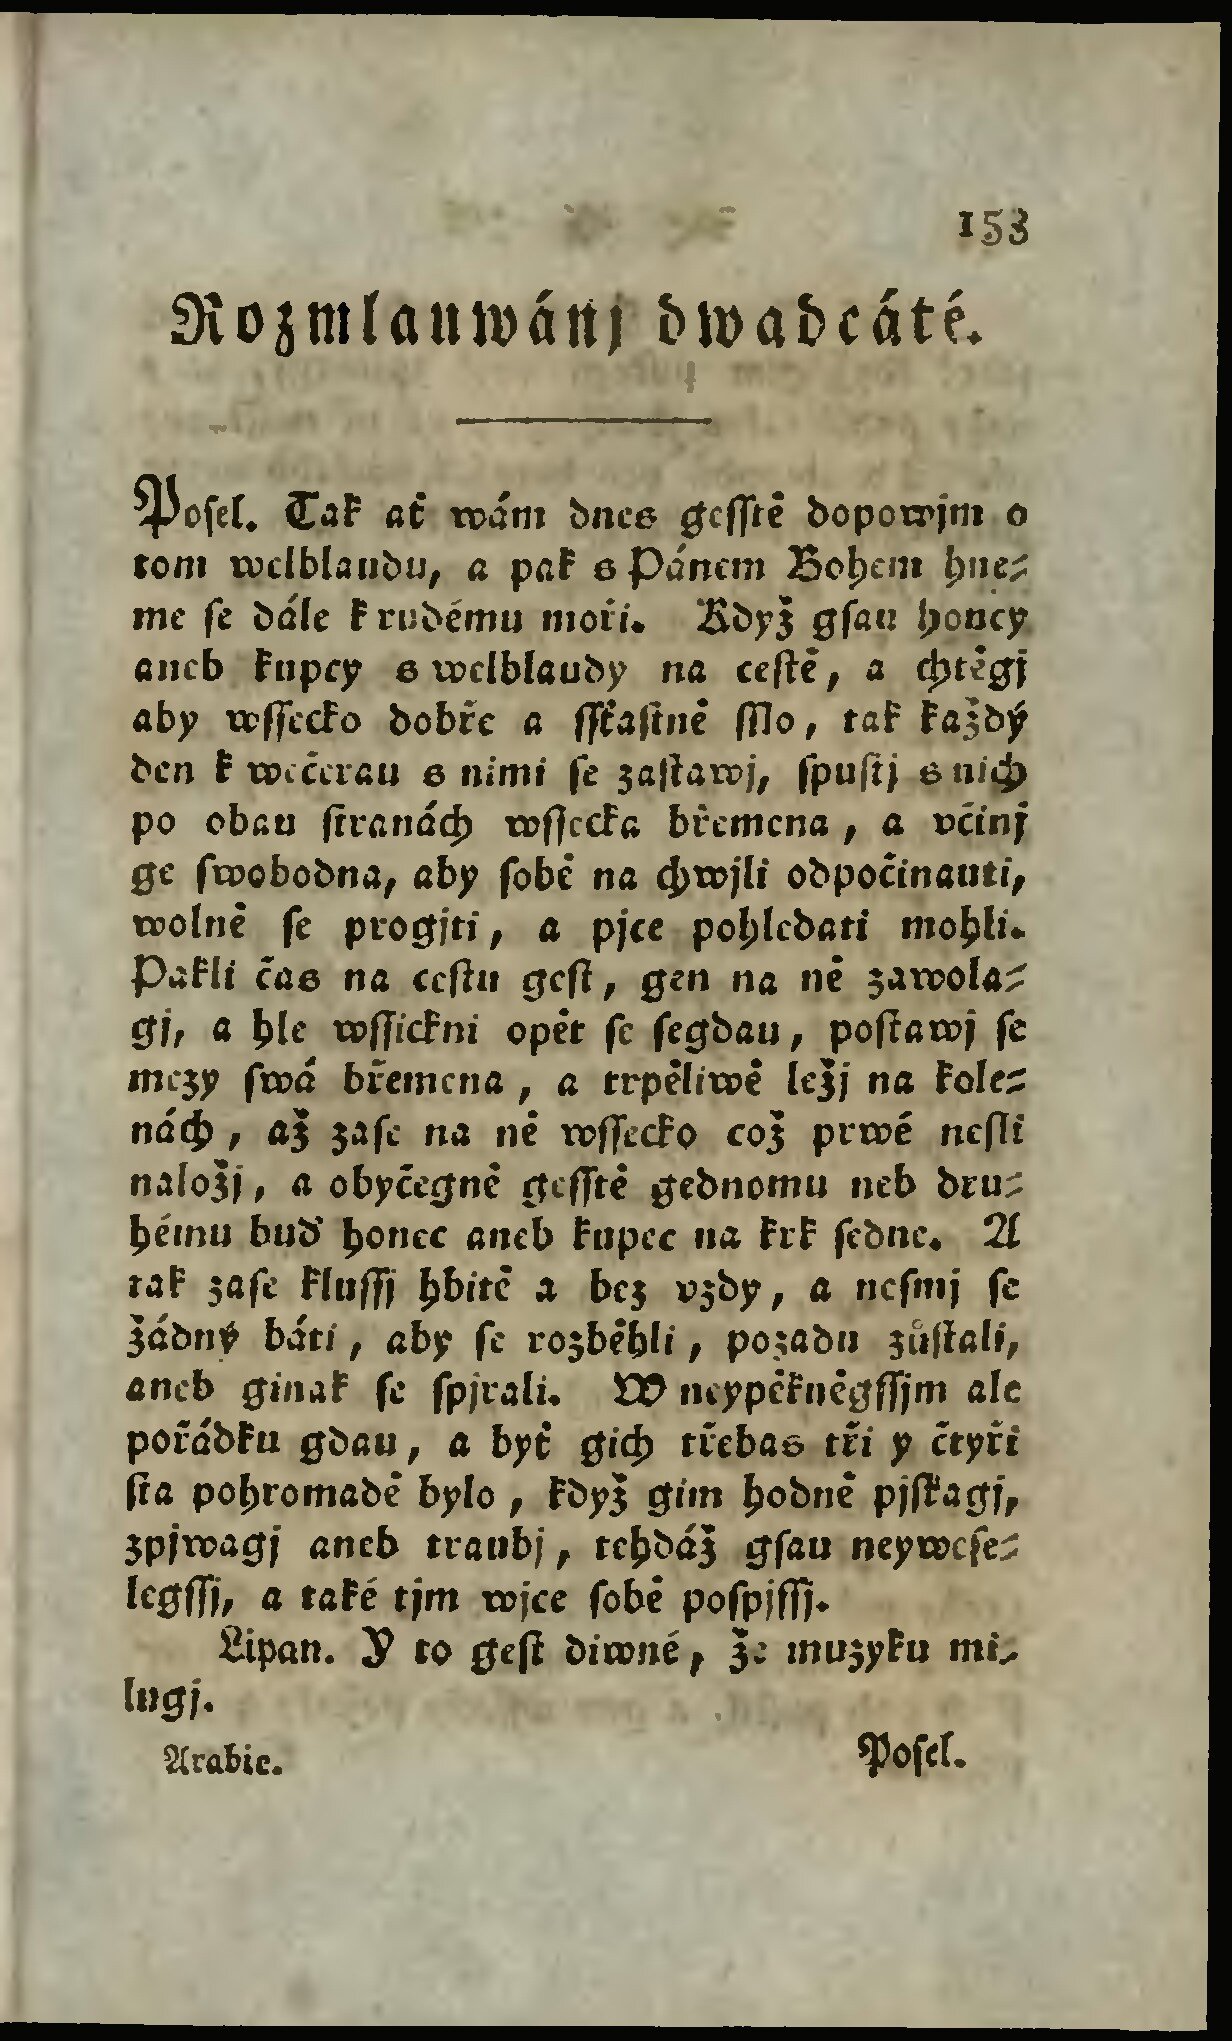 153
Rozmlauwánj dwadcáté.
Posel. Tak ať wám dnes gesstě dopowjm o
tom welblaudu, a pak s Pánem Bohem hne-
me se dále k rudému moři. Když gsau honcy
aneb kupcy s welblaudy na cestě, a chtěgj
aby wssecko dobře a sstastně sslo, tak každý
den k wečerau s nimi se zastawj, spustj s nich
po obau stranách wssecka břemena, a včinj
ge swobodna, aby sobě na chwjli odpočinauti,
wolně se progjti, a pjce pohledati mohli.
Pakli čas na cestu gest, gen na ně zawola-
gj, a hle wssickni opět se segdau, postawj se
mezy swá břemena, a trpěliwě ležj na kole-
nách, až zase na ně wssecko což prwé nesli
naložj, a obyčegně gesstě gednomu neb dru-
hému buď honec aneb kupec na krk sedne. A
tak zase klussj hbitě a bez vzdy, a nesmj se
žádný báti, aby se rozběhli, pozadu zůstali,
aneb ginak se spjrali. W neypěkněgssjm ale
pořádku gdau, a byť gich třebas tři y čtyři
sta pohromadě bylo, když gim hodně pjskagj,
zpjwagj aneb traubj, tehdáž gsau neywese-
legssj, a také tjm wjce sobě pospjssj.
Lipan. Y to gest diwné, že muzyku mi-
lugj.
Arabie. Posel.